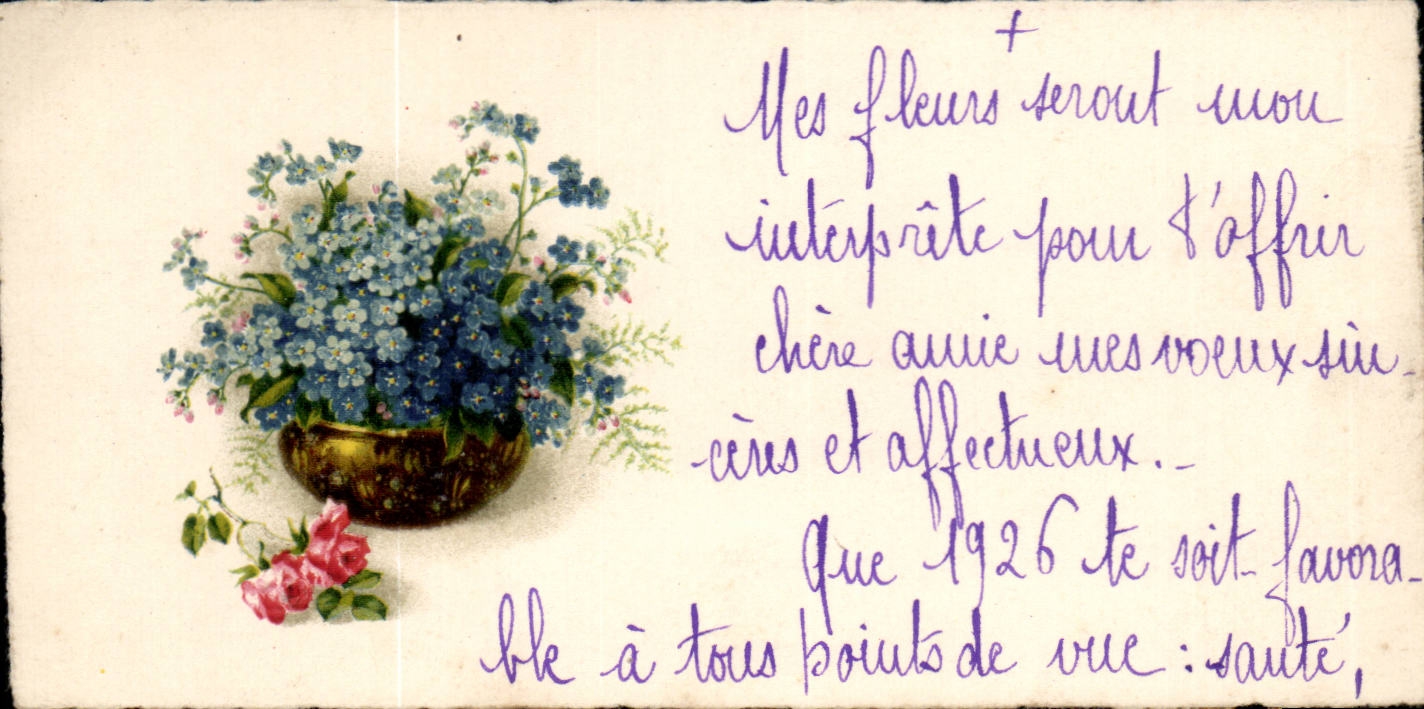 +
Mes fleurs seront mon
interprête pour t'offrir
chère amie mes voeux sin-
-cères et affectueux.-
Que 1926 te soit favora-
ble à tous points de vue : santé,